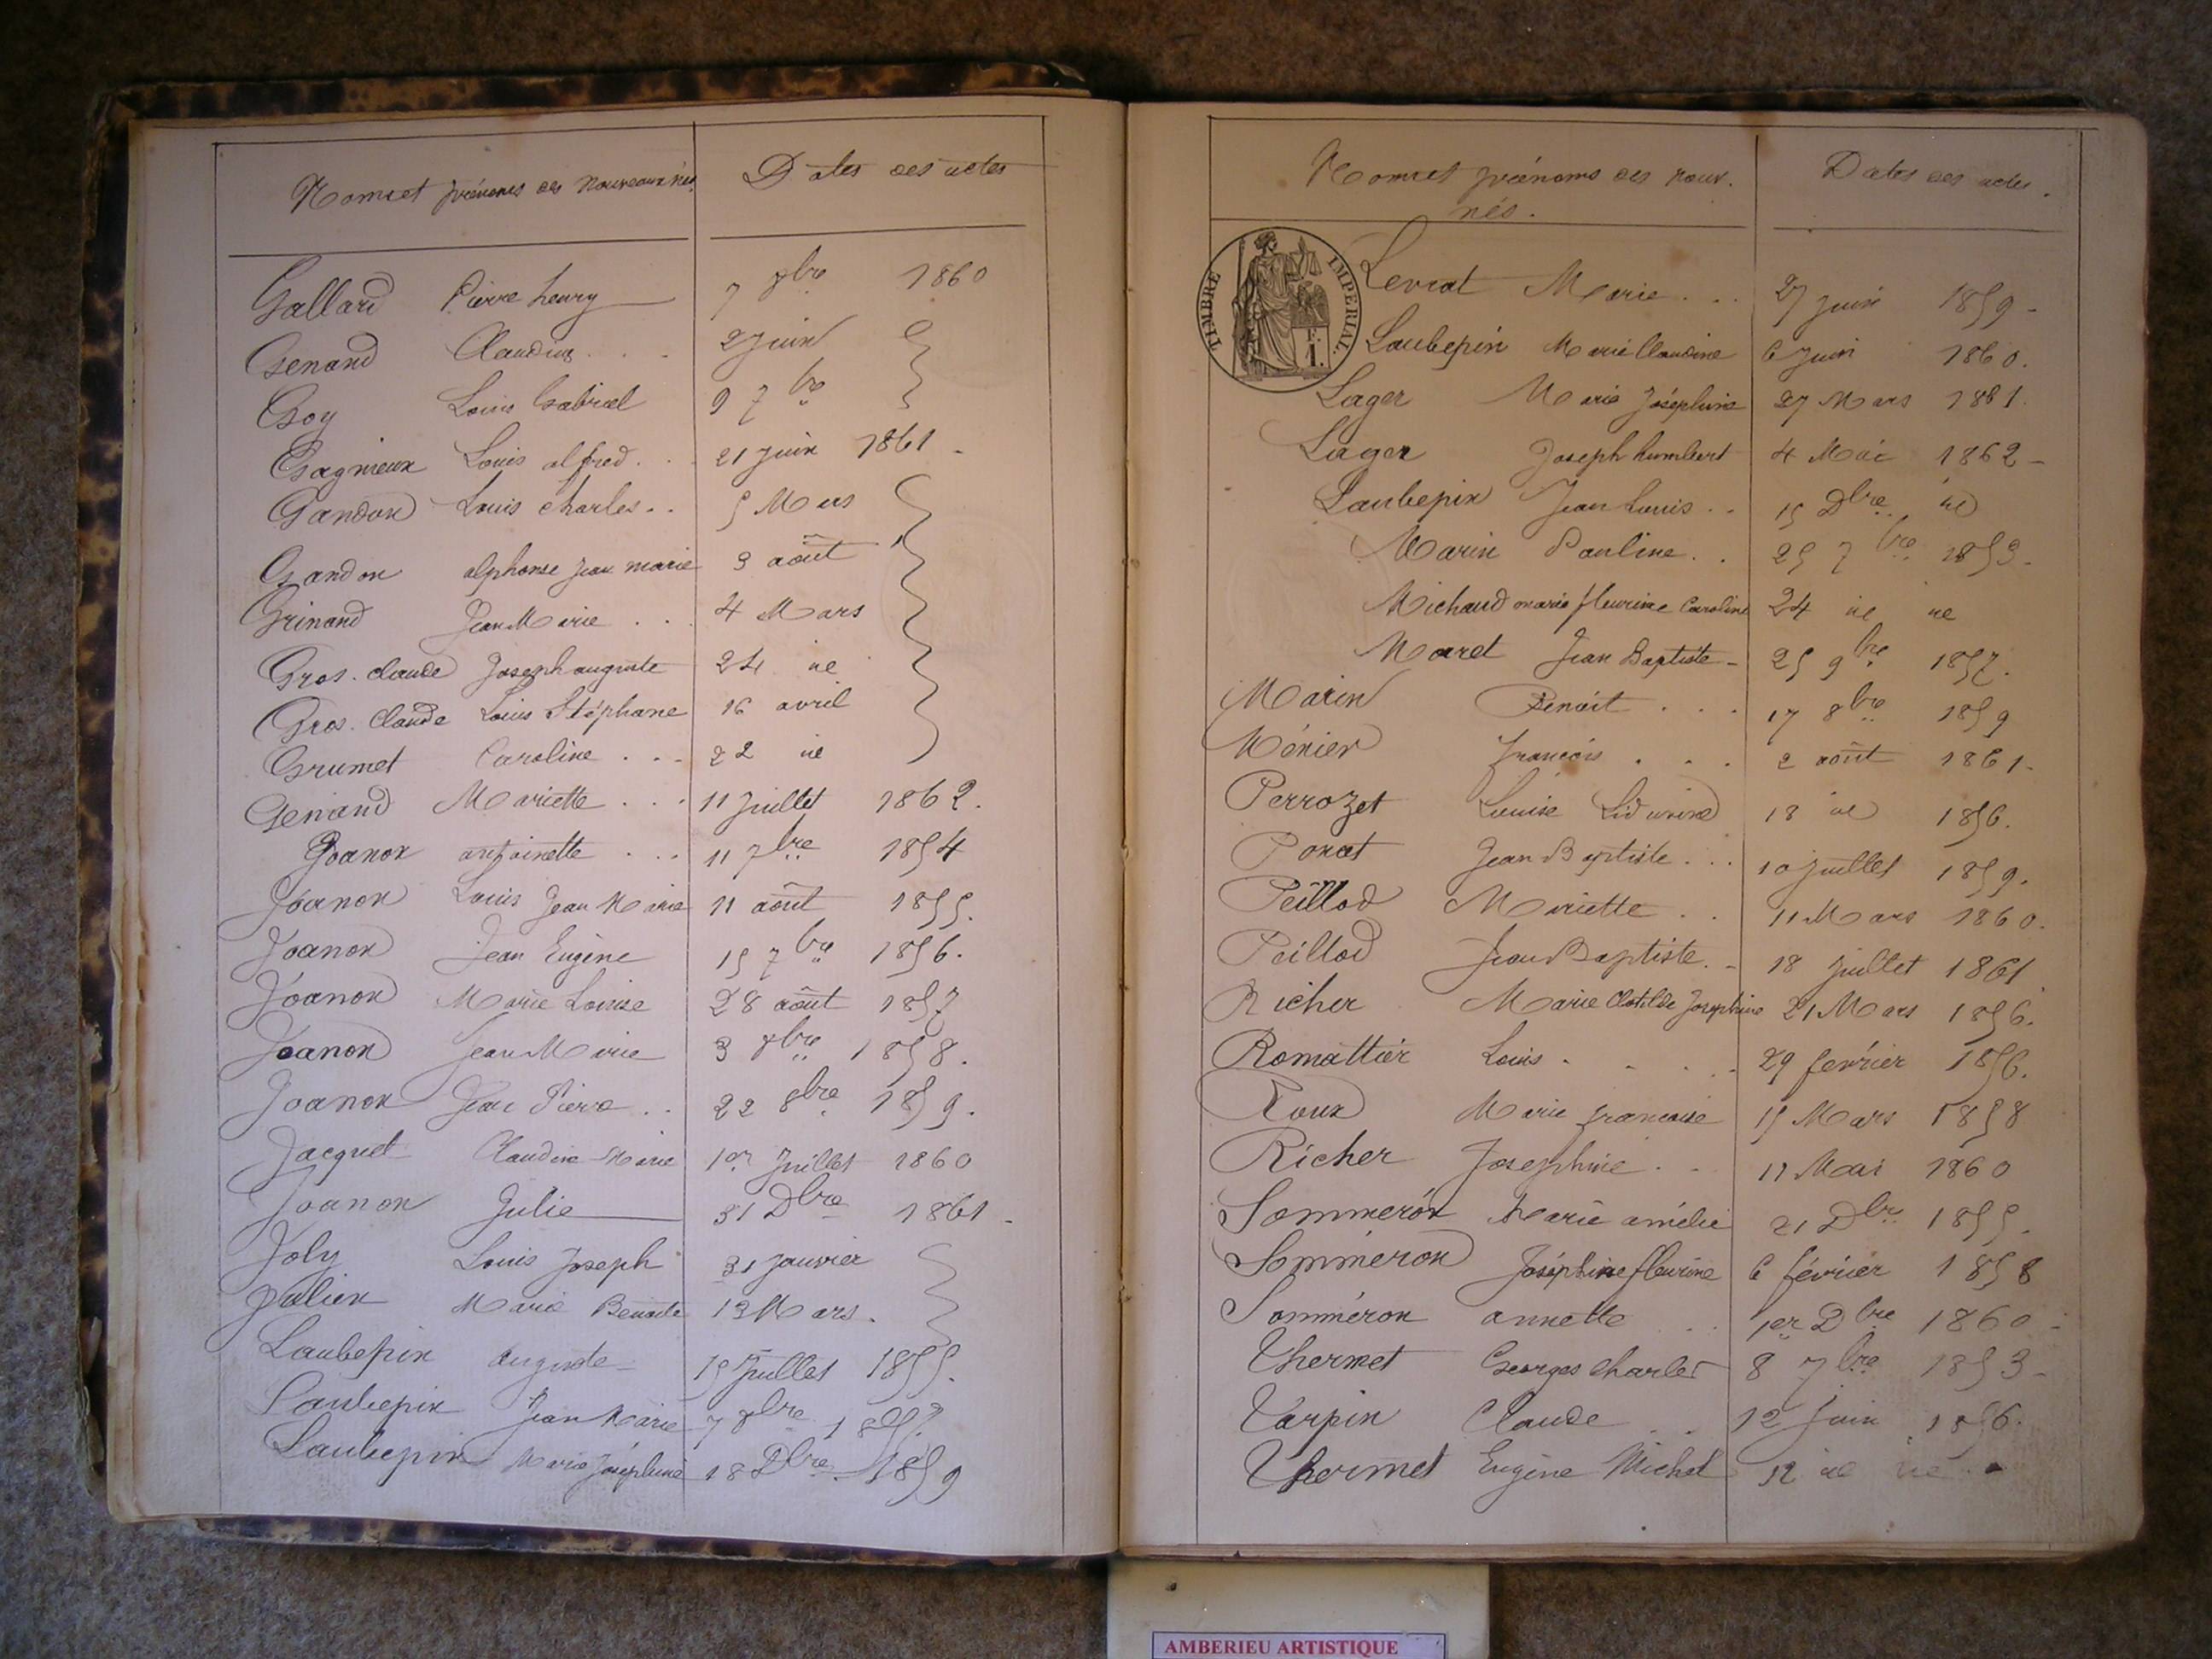 Noms et prénoms des nouveaux nés. Dates des actes
Gallard Pierre henry 7 8bre 1860
Genand Claudius . . . 2 juin
Goy Louis Gabriel 9 7bre
Gagnieux Louis alfred . . . 21 juin 1861 -
Gandon Louis charles . . 5 Mars
Gandon alphonse jean marie 3 août
Grinand Jean Marie . . . 4 Mars
Gros. claude Joseph auguste 24 id
Gros. Claude Louis Stéphane 16 avril
Grumet Caroline . . - 22 id
Genand Mariette . . . 11 juillet 1862.
Joanon antoinette . . . 11 7bre 1854
Joanon Louis Jean Marie 11 août 1855.
Joanon Jean Eugène 15 7bre 1856.
Joanon Marie Louise 28 août 1857
Joanon Jean Marie 3 8bre 1858.
Joanon Jean Pierre . . 22 8bre 1859.
Jacquet Claudine Marie 1er Juillet 1860
Joanon Julie 31 Dbre 1861 -
Joly Louis Joseph 31 janvier
Julien Marie Benoite 13 Mars .
Laubepin auguste - 15 Juillet 1855.
Laubepin Jean Marie 7 8bre
Laubepin Marie Joséphine 18 Dbre 1859
Noms et prénoms des nouv. nés. Dates des actes.
TIMBRE IMPÉRIAL.
Levrat Marie . . . 27 juin 1859 -
Laubepin Marie Claudine 6 Juin 1860.
Lager Marie Joséphine 27 Mars 1861.
Lager Joseph humbert 4 Mai 1862 -
Laubepin Jean Louis . . 15 Dbre id
Marin Pauline . . 25 7bre 1853 -
Michaud marie fleurine Caroline 24 id id
Moret Jean Baptiste - 25 9bre 1857.
Marin Benoit . . . 17 8bre 1859
Ménier françois . . . 2 août 1861 -
Perrozet Louise 18 id 1856.
Ponat Jean Baptiste . . . 10 juillet 1859.
Peillod Mariette . . 11 Mars 1860.
Peillod Jean Baptiste . - 18 Juillet 1861
Richer Marie Clotilde Josephine 21 Mars 1856.
Romattier Louis - - . - 29 février 1856.
Roux Marie francoise 15 Mars 1858
Richer Josephine . . 11 Mai 1860
Sommeron Marie amélie 21 Dbre 1855.
Sommeron Joséphine fleurine 6 février 1858
Sommeron annette . . 1er Dbre 1860 -
Thermet Georges Charles 8 7bre 1853 -
Varpin Claude . . 12 Juin 1856.
Thermet Eugène Michel 12 id id
AMBERIEU ARTISTIQUE